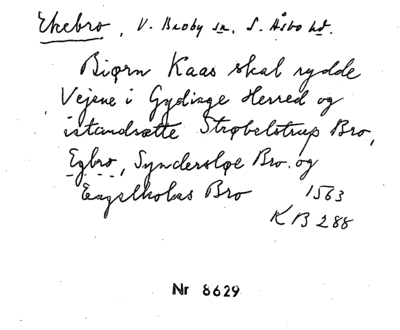 Ekebro, V. Broby sn, S. Åsbo hd.
Biørn Kaas skal rydde
Vejene i Gydinge Herred og
istandsætte Strøbelstrup Bro,
Egbro, Syndersløe Bro. og
Engelholms Bro 1563
KB 288
Nr 8629